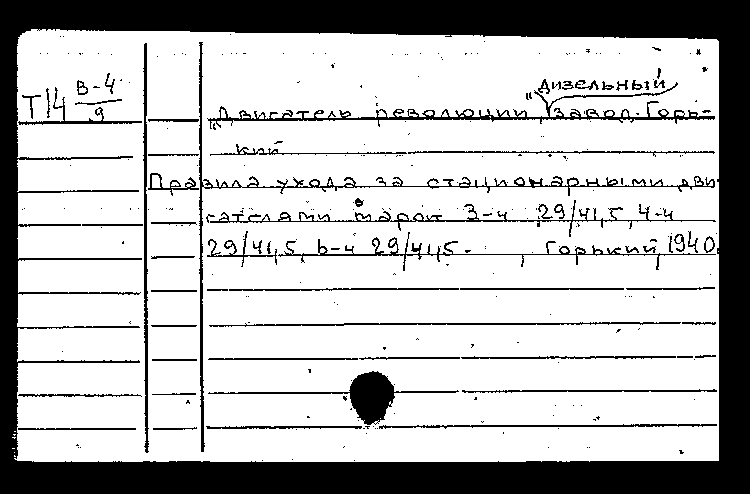 Т14 В-4/9
дизельный
„Двигатель революции", завод. Горь-
кий
Правила ухода за стационарными дви-
гателями марок 3-ч 29/41,5, 4-ч
29/41,5, 6-ч 29/41,5. , Горький, 1940.